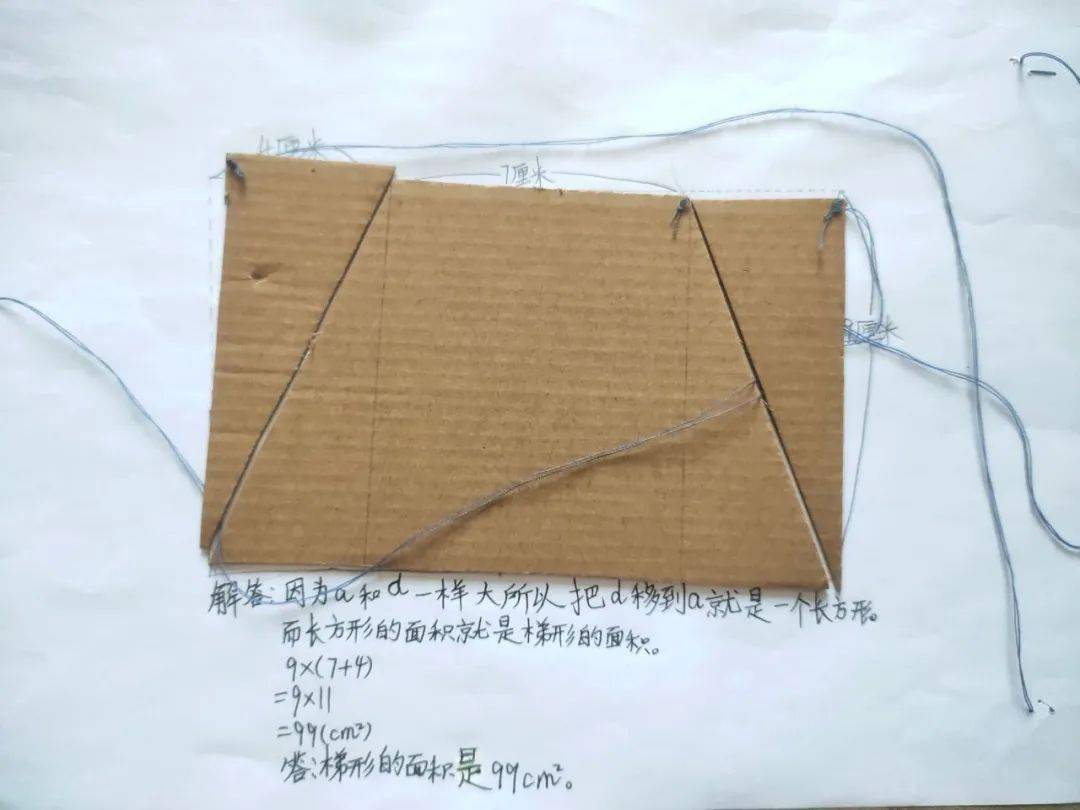 4厘米
7厘米
厘米
解答：因为a和d一样大所以把d移到a就是一个长方形。
而长方形的面积就是梯形的面积。
9×(7+4)
=9×11
=99(cm²)
答：梯形的面积是99cm²。